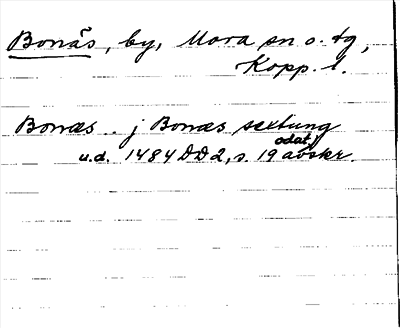 Bonäs, by, Mora sn o. tg,
Kopp. l.
Bonæs. j Bonæs sextung
u.d. 1484 DD2, s. 19 odat. avskr.